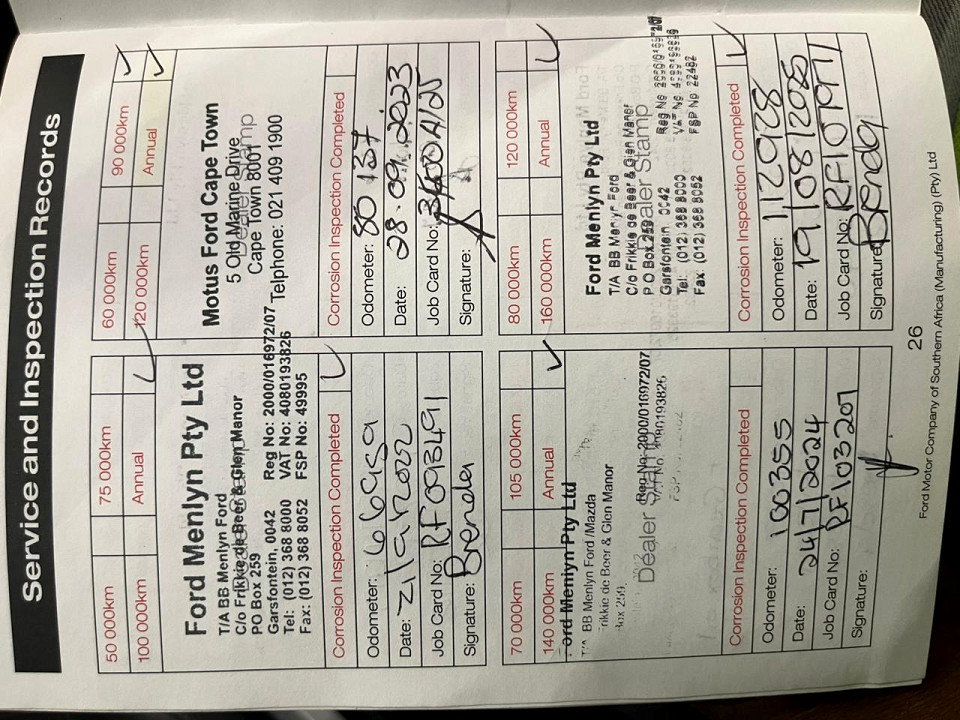 Service and Inspection Records
50 000km 75 000km
100 000km Annual ✓
Ford Menlyn Pty Ltd
T/A BB Menlyn Ford
C/o Frikkie de Beer & Glen Manor
PO Box 259
Garsfontein, 0042 Reg No: 2000/016972/07
Tel: (012) 368 8000 VAT No: 4080193826
Fax: (012) 368 8052 FSP No: 49995
Corrosion Inspection Completed ✓
Odometer:
Date:
Job Card No: RF093491
Signature: Brenda
60 000km 90 000km ✓
120 000km Annual ✓
Motus Ford Cape Town
5 Old Marine Drive
Dealer Stamp
Cape Town 8001
Telphone: 021 409 1900
Corrosion Inspection Completed
Odometer: 80 137
Date: 28.09.2023
Job Card No:
Signature:
70 000km 105 000km
140 000km Annual ✓
Ford Menlyn Pty Ltd
T/A BB Menlyn Ford /Mazda
Frikkie de Beer & Glen Manor
Box 259,
Dealer Stamp
Reg No: 2000/016972/07
Corrosion Inspection Completed
Odometer: 100355
Date: 24/7/2024
Job Card No: RF103207
Signature:
80 000km 120 000km
160 000km Annual ✓
Ford Menlyn Pty Ltd
T/A BB Menlyn Ford
C/o Frikkie de Beer & Glen Manor
P O Box 259
Dealer Stamp
Garsfontein 0042
Tel: (012) 368 8000
Fax: (012) 368 8052 FSP No 22482
Corrosion Inspection Completed ✓
Odometer: 112928
Date: 19/08/2025
Job Card No: RA107971
Signature: Brenda
26
Ford Motor Company of Southern Africa (Manufacturing) (Pty) Ltd